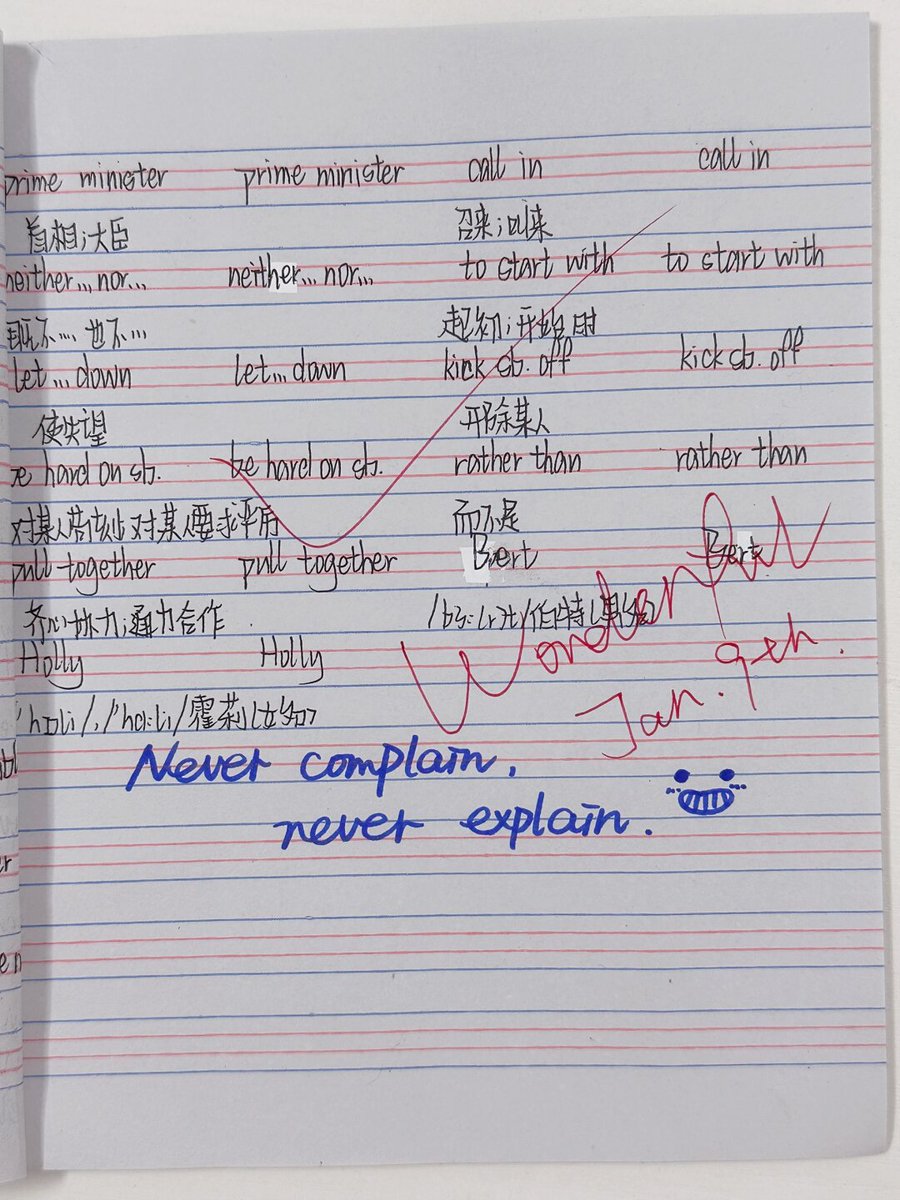 prime minister prime minister call in call in
首相;大臣 召来;叫来
neither...nor... neither...nor... to start with to start with
既不…也不… 起初;开始时
let...down let...down kick sb. off kick sb. off
使失望 开除某人
be hard on sb. be hard on sb. rather than rather than
对某人苛刻;对某人要求严厉 而不是
pull together pull together Bert Bert
齐心协力;通力合作 /bɜː(r)t/伯特(男名)
Holly Holly
/'hɒli/,/'hɑːli/霍莉(女名)
Wonderful
Jan. 9th.
Never complain,
never explain.